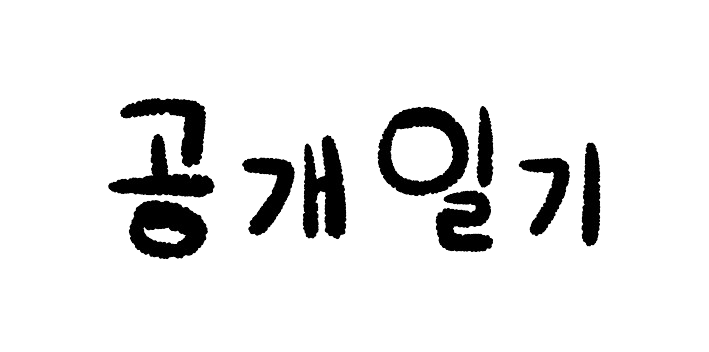 공개일기